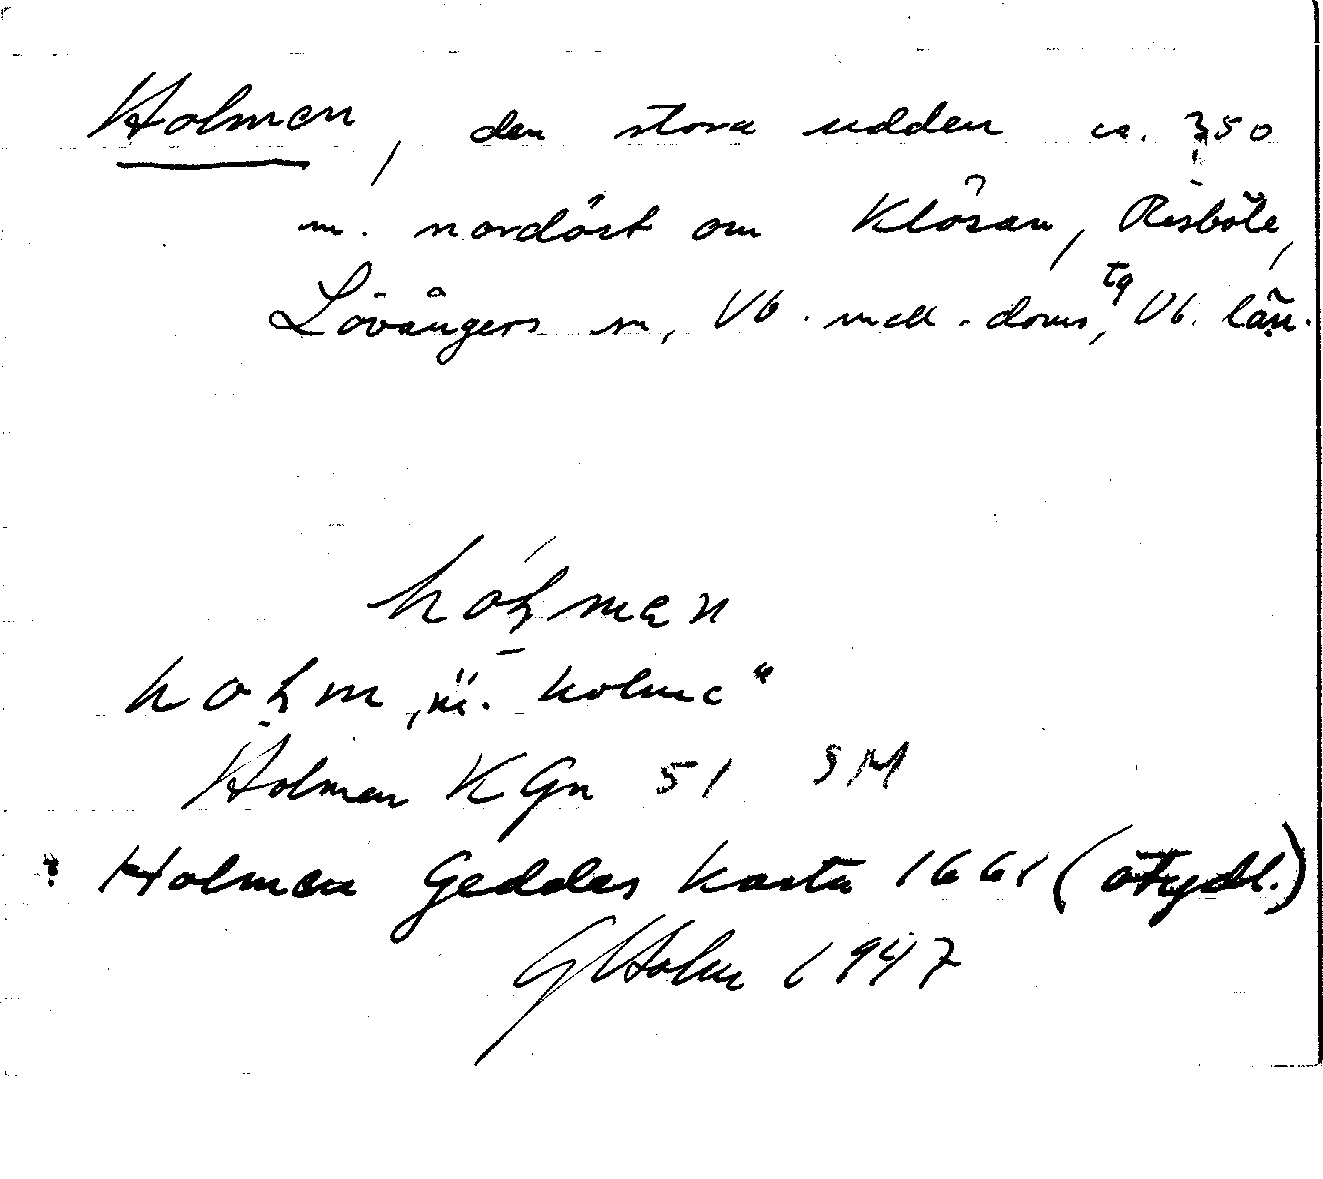 Holmen, den stora udden ca. 350
m. nordöst om Klösan, Risböle,
Lövångers sn, Vb. mell. doms, tg Vb. län.
hoḷmen
hoḷm, "i. holme"
Holmen K Gn 51 SM
? Holmen Geddes karta 1661 (otydl.)
G Holm 1947